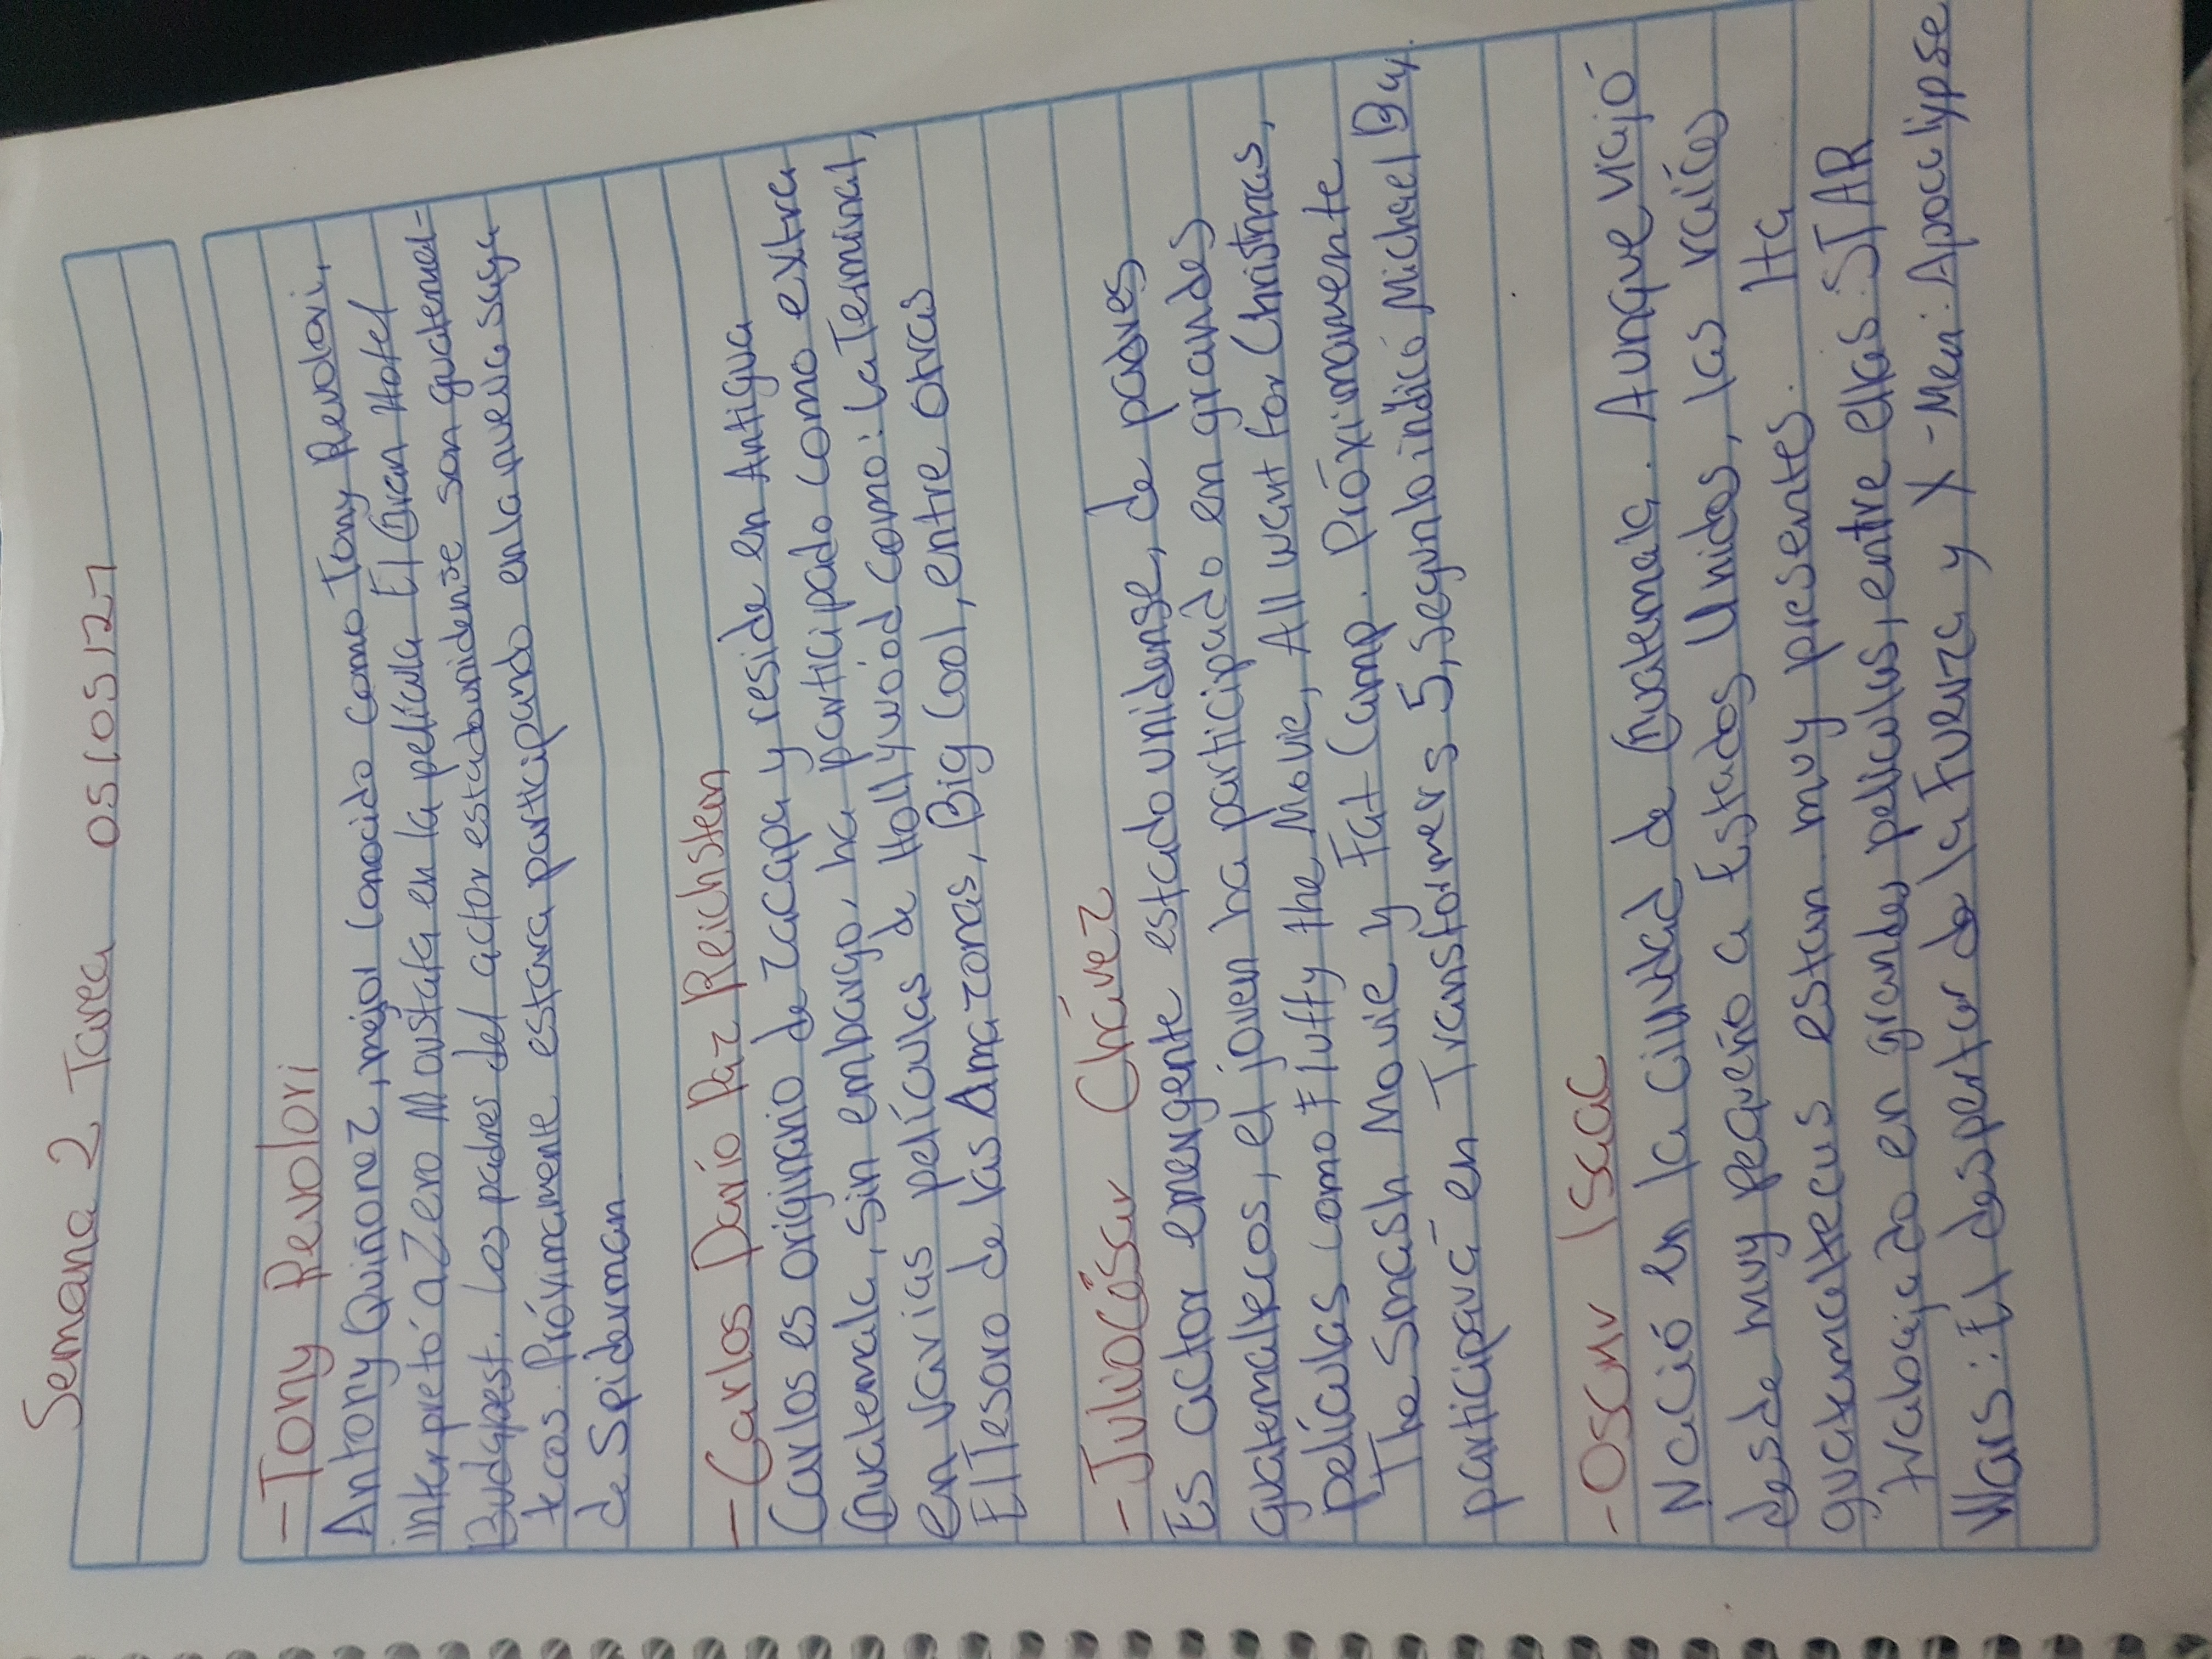 Semana 2 Tarea 05/05/21
-Tony Revolori
Antony Quiñonez, mejor conocido como Tony Revolori,
interpretó a Zero Moustafa en la película El Gran Hotel
Budapest. Los padres del actor estadounidense son guatemal-
tecos. Próximamente estara participando en la nueva saga
de Spiderman
-Carlos Darío Paz Reichsten
Carlos es originario de zacapa y reside en Antigua
Guatemala, sin embargo, ha participado como extra
en varias películas de Hollywood como: La Terminal,
El Tesoro de las Amazonas, Big Cool, entre otras
-Julio César Chávez
Es actor emergente estadounidense, de padres
guatemaltecos, el joven ha participado en grandes
películas como Fluffy the Movie, All want for Christmas,
The Smash Movie y Fat Camp. Próximamente
participará en Transformers 5, segun lo indicó Michael Bay.
-Oscar Isaac
Nació en la ciudad de Guatemala. Aunque viajó
desde muy pequeño a Estados Unidos, las raíces
guatemaltecas estan muy presentes. Ha
trabajado en grandes peliculas, entre ellas: STAR
Wars: El despertar de la Fuerza y X-Men: Apocalipse